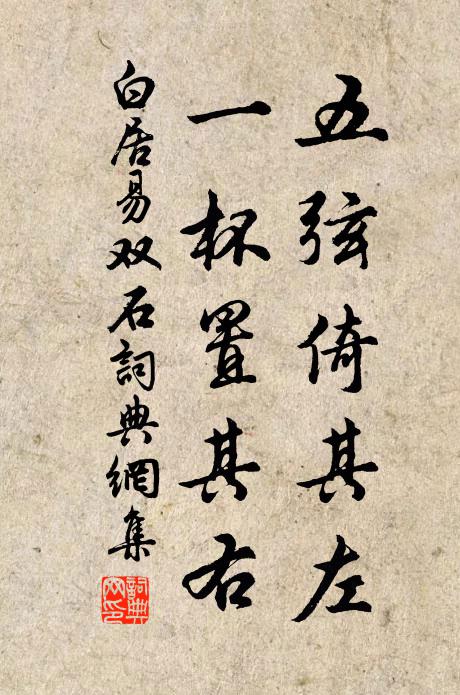 五弦倚其左
一杯置其右
白居易双石詞典網集
詞典
网印